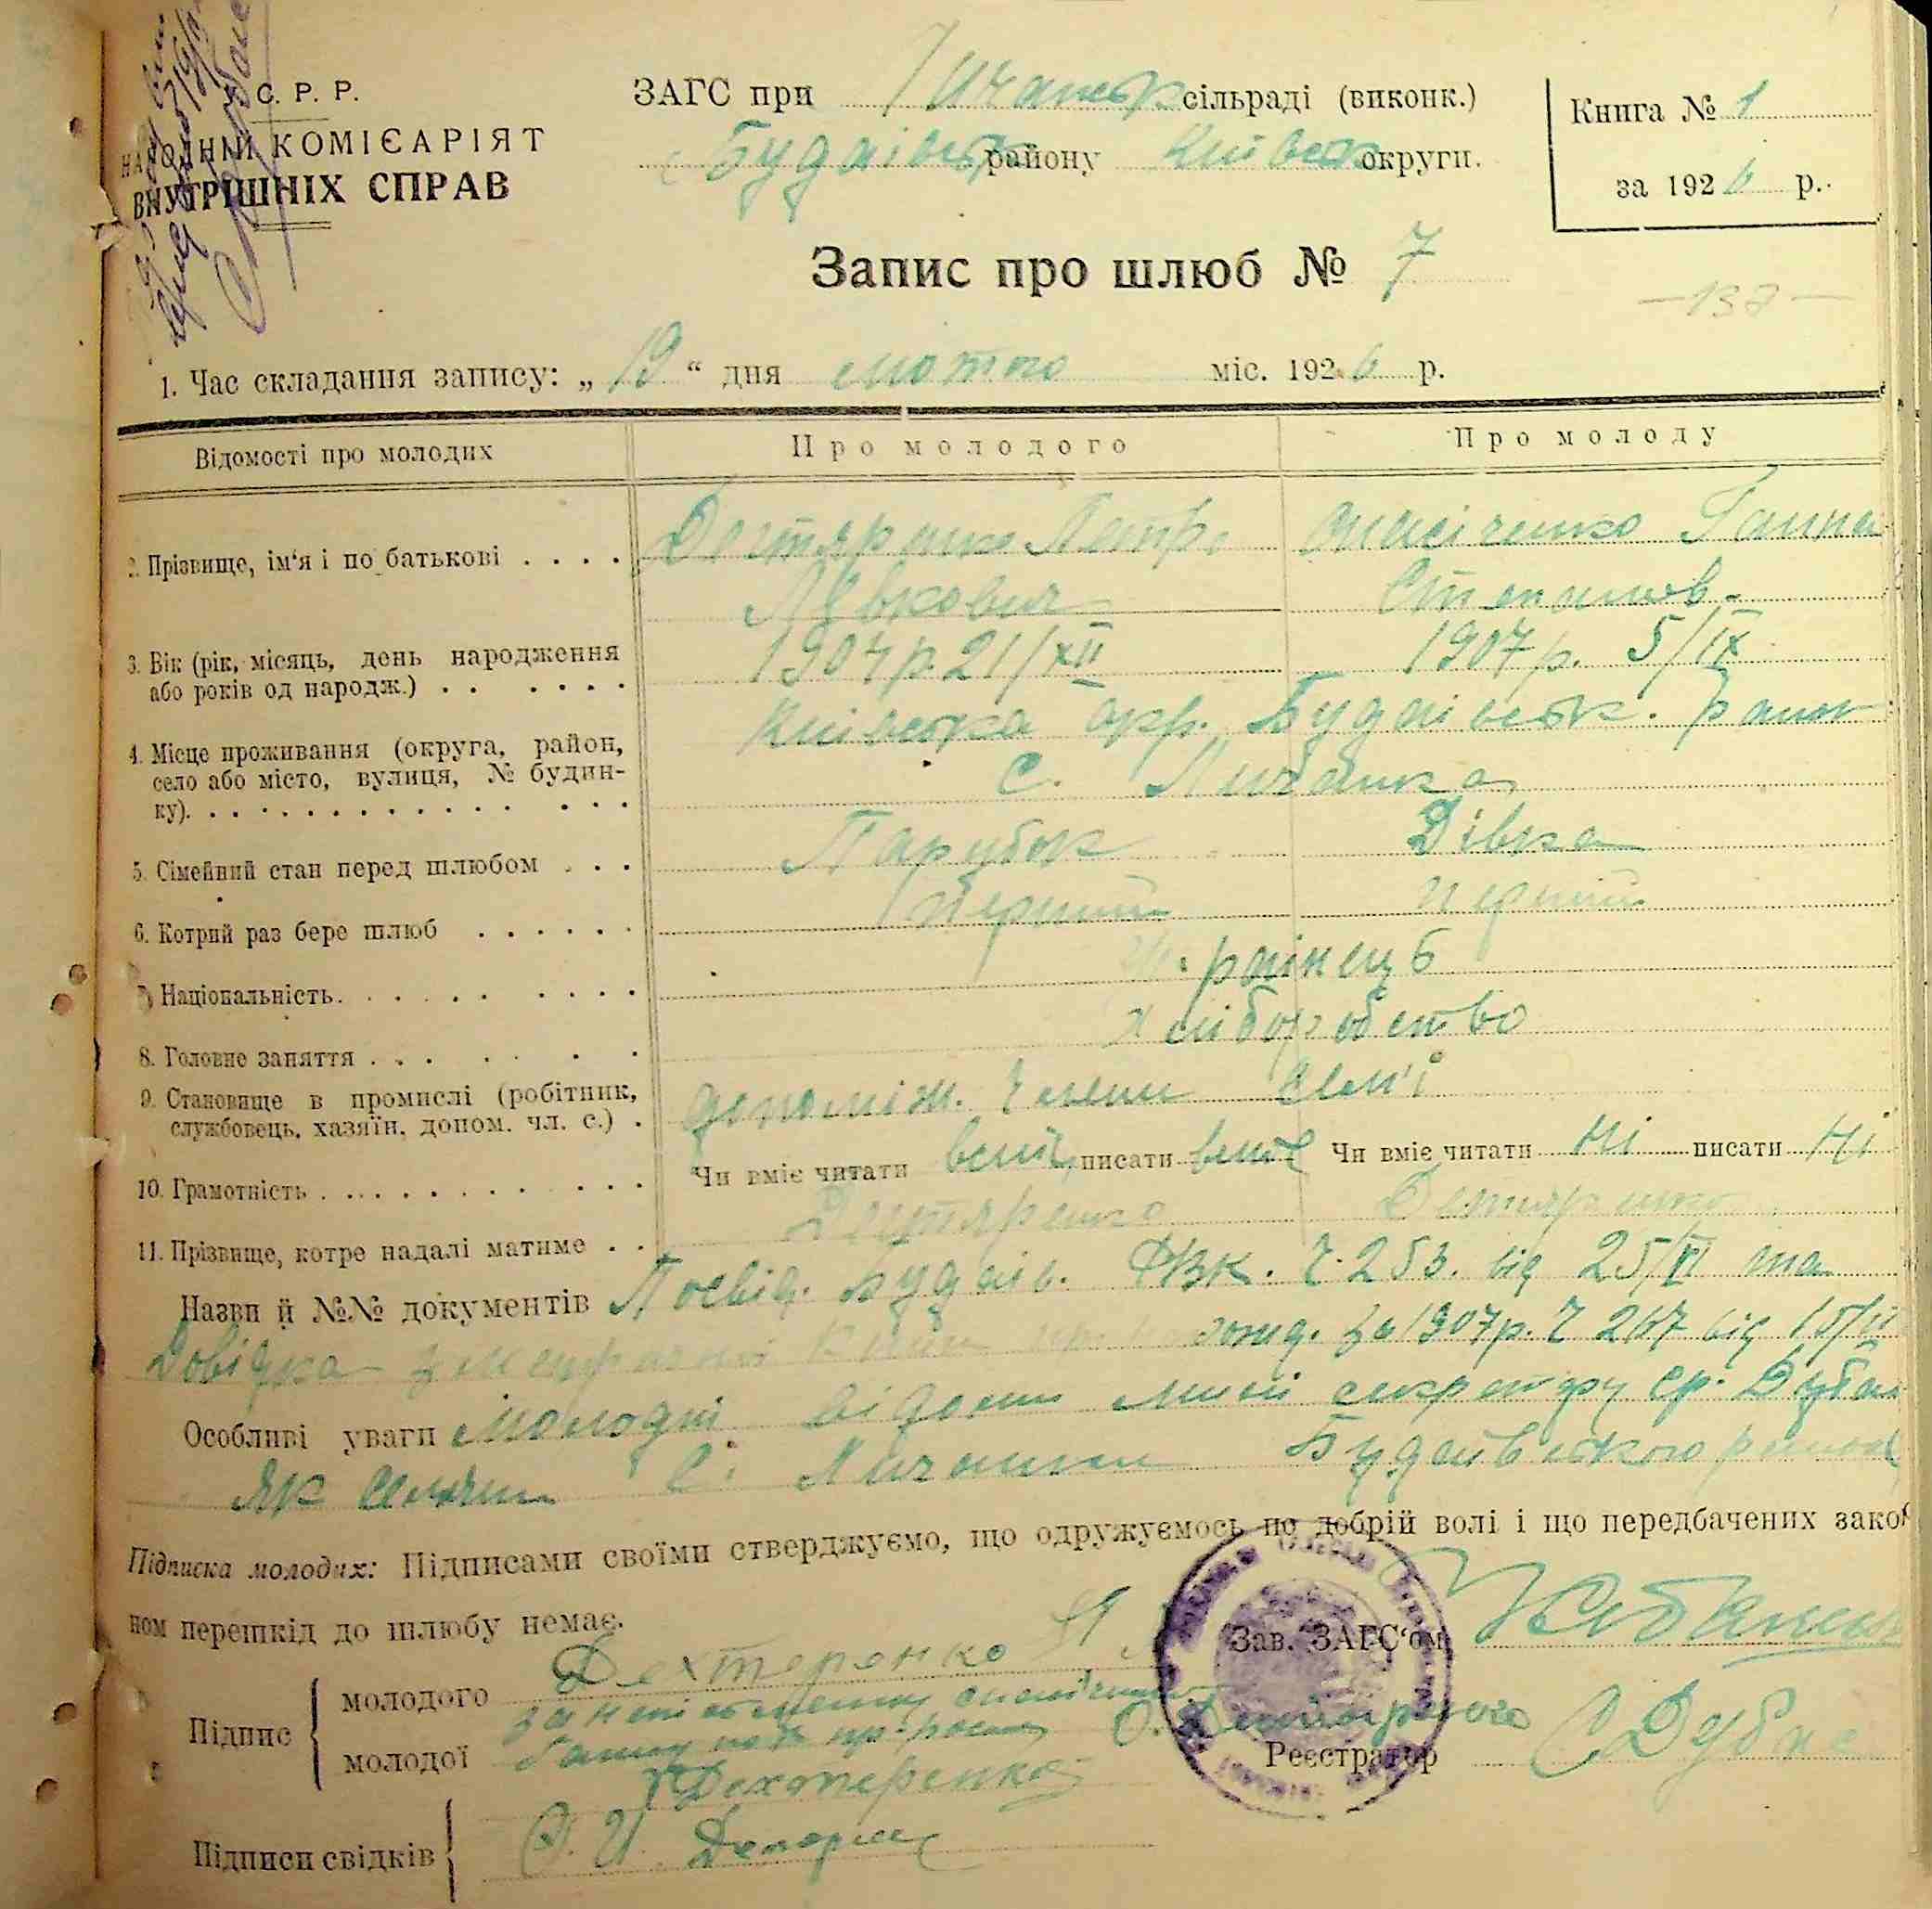 С. Р. Р.
НАРОДНІЙ КОМІСАРІЯТ
ВНУТРІШНІХ СПРАВ
ЗАГС при Личанськ сільраді (виконк.)
Будаївськ району Київськ округи.
Книга № 1
за 1926 р.
Запис про шлюб № 7
— 137 —
1. Час складання запису: „19“ дня лютого міс. 1926 р.
Відомості про молодих
Про молодого
Про молоду
2. Прізвище, ім'я і по батькові . . . .
Дехтяренко Петро
Ганна
Левкович
Степанов.
3. Вік (рік, місяць, день народження
або років од народж.) . . . . . .
1907 р 21/XII
1907 р. 5/IX
4. Місце проживання (округа, район,
село або місто, вулиця, № будин-
ку). . . . . . . . . . . . . . .
Київська окр. Будаївськ. район
с. Личанка
5. Сімейний стан перед шлюбом . . .
Парубок
Дівка
6. Котрий раз бере шлюб . . . . . .
Перший
перший
7. Національність. . . . . . . . . .
Українець
8. Головне заняття . . . . . . .
Хліборобство
9. Становище в промислі (робітник,
службовець, хазяїн, допом. чл. с.) .
допоміж. члени сем'ї
10. Грамотність . . . . . . . . . . . .
Чи вміє читати вміє писати вміє
Чи вміє читати ні писати ні
11. Прізвище, котре надалі матиме . .
Дехтяренко
Дехтяренко
Назви й №№ документів Посвід. Будаїв. РВК. Ч. 253. від 25/VI та
Довідка з метричної книги про рожд. за 1907 р. Ч 267 від 15/II
Особливі уваги Молодні відомі мині секретару ср. Дубом
як селяни с. Личанки Будаївського району
Підписка молодих: Підписами своїми стверджуємо, що одружуємось по добрій волі і що передбачених зако-
ном перешкід до шлюбу немає.
Зав. ЗАГС'ом
Підпис
молодого
Дехтеренко П
молодої
за неписьменну
Ганну по її проханню
Дехтеренко
Реєстратор
С Дубо
Підписи свідків